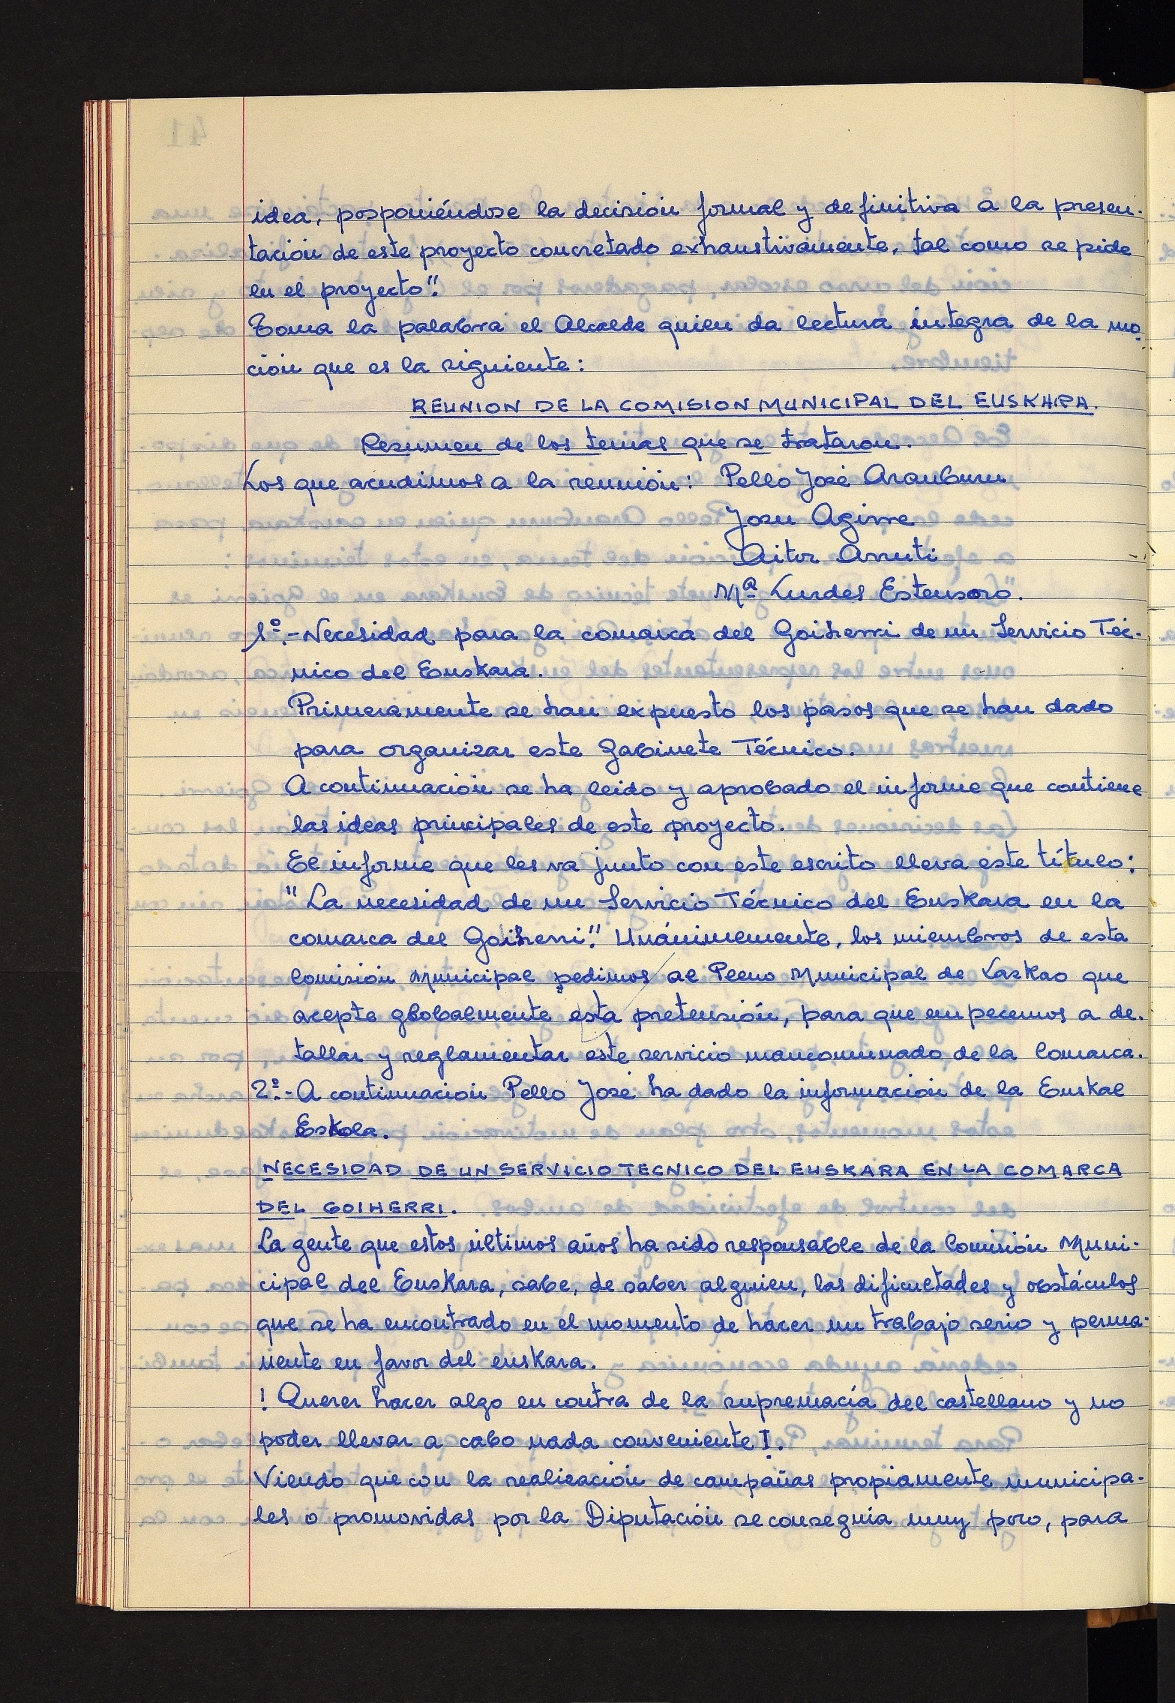 idea, posponiéndose la decisión formal y definitiva a la presen-
tación de este proyecto concretado exhaustivamente, tal como se pide
en el proyecto".
Toma la palabra el Alcalde quien da lectura íntegra de la mo-
ción que es la siguiente:
REUNION DE LA COMISION MUNICIPAL DEL EUSKARA.
Resumen de los temas que se trataron.
Los que acudimos a la reunión: Pello José Aranburu
Josu Agirre
Aitor Arruti
Mª Lurdes Estensoro".
1º.- Necesidad para la comarca del Goiherri de un Servicio Téc-
nico del Euskara.
Primeramente se han expuesto los pasos que se han dado
para organizar este Gabinete Técnico.
A continuación se ha leido y aprobado el informe que contiene
las ideas principales de este proyecto.
El informe que les va junto con este escrito lleva este título:
"La necesidad de un Servicio Técnico del Euskara en la
comarca del Goiherri". Unánimemente, los miembros de esta
Comisión Municipal pedimos al Pleno Municipal de Lazkao que
acepte globalmente esta pretensión, para que empecemos a de-
tallar y reglamentar este servicio mancomunado de la Comarca.
2º.- A continuación Pello José ha dado la información de la Euskal
Eskola.
NECESIDAD DE UN SERVICIO TECNICO DEL EUSKARA EN LA COMARCA
DEL GOIHERRI.
La gente que estos últimos años ha sido responsable de la Comisión Muni-
cipal del Euskara, sabe, de saber alguien, las dificultades y obstáculos
que se ha encontrado en el momento de hacer un trabajo serio y perma-
nente en favor del euskara.
! Querer hacer algo en contra de la supremacía del castellano y no
poder llevar a cabo nada conveniente!.
Viendo que con la realización de campañas propiamente municipa-
les o promovidas por la Diputación se conseguía muy poco, para